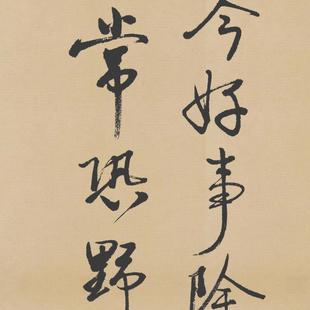 今好事除
常恐野